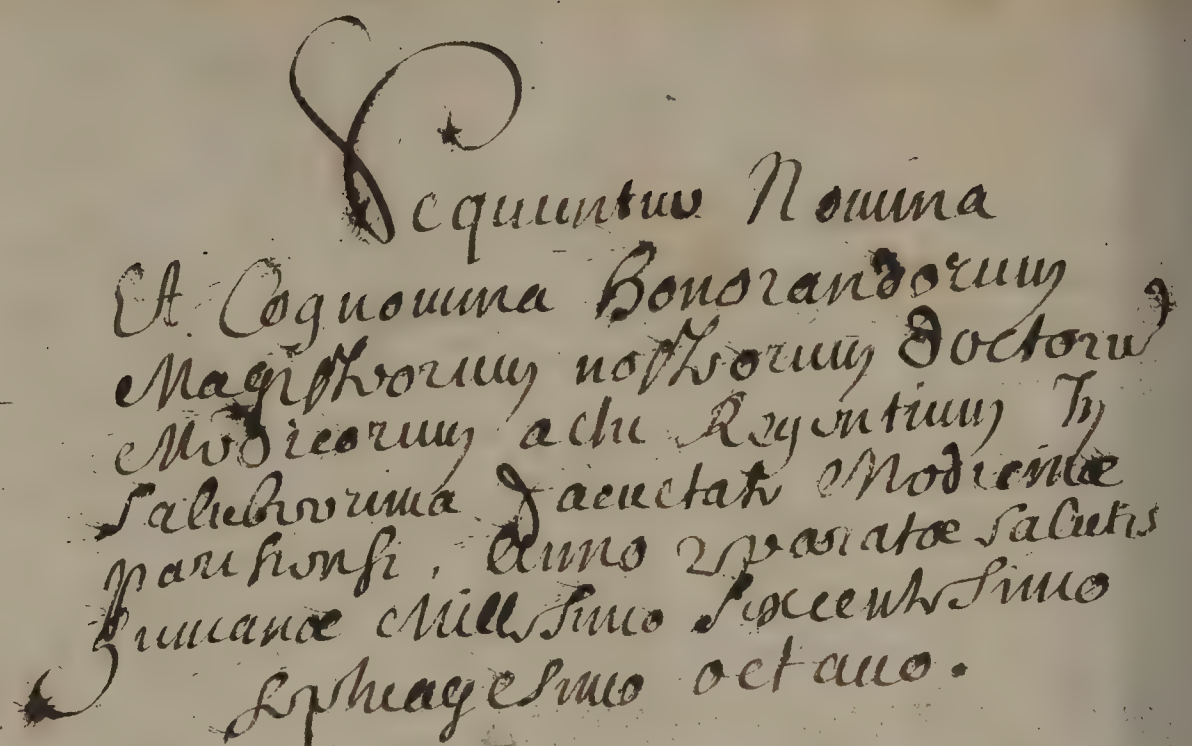 Sequuntur Nomina
Et Cognomina Honorandorum
Magistrorum nostrorum Doctorū
Medicorum actu Regentium In
saluberrima Facultate Medicinæ
parisiensi, Anno reparatæ salutis
humanæ Millesimo Sexcentesimo
septuagesimo octavo.